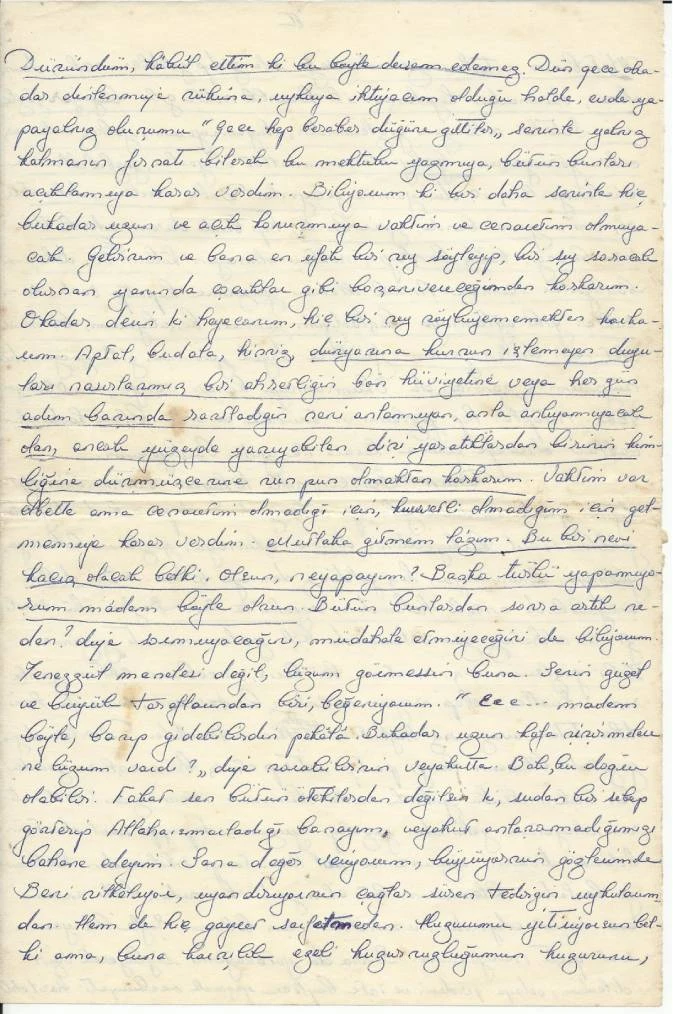 Düşündüm, kabûl ettim ki bu böyle devam edemez. Dün gece oka-
dar dinlenmiye rûhûna, uykuya ihtiyacım olduğu halde, evde ya-
payalnız oluşumu "Gece hep beraber düğüne gittiler„ seninle yalnız
kalmanın fırsatı bilerek bu mektubu yazmıya, bütün bunları
açıklamıya karar verdim. Biliyorum ki bir daha seninle hiç
bukadar uzun ve açık konuşmıya vaktim ve cesaretim olmıya-
cak. Gelirsem ve bana en ufak bir şey söyleyip, bir şey soracak
olursan yanında çocuklar gibi bozarıvereceğimden korkarım.
Okadar derin ki heyecanım, hiç bir şey söyliyememekten korka-
rım. Aptal, budala, hissiz, dünyasına kurşun işlemeyen duygu-
ları nasırlaşmış bir askerliğin bön hüviyetine veya her gün
adım başında rastladığın seni anlamıyan, asla anlıyamıyacak
olan, ancak yüzeyde yaşıyabilen dişi yaratıklardan birinin kim-
liğine dürmüşcesine sus pus olmaktan korkarım. Vaktim var
elbette ama cesaretim olmadığı için, kuvvetli olmadığım için gel-
memiye karar verdim. Mutlaka gitmem lâzım. Bu bir nevi
kaçış olacak belki. Olsun, neyapayım? Başka türlü yapamıyo-
rum mâdem böyle olsun. Bütün bunlardan sonra artık ne-
den? diye sormıyacağını, müdahale etmiyeceğini de biliyorum.
Tenezzül meselesi değil, lüzum görmessin buna. Senin güzel
ve büyük taraflarından biri, beğeniyorum. "Eee... madem
böyle, basıp gidebilirdin pekâlâ. Bukadar uzun kafa şişirmelere
ne lüzum vardı?„ diye sorabilirsin veyahutta. Bak, bu doğru
olabilir. Fakat sen bütün ötekilerden değilsin ki, sudan bir sebep
gösterip Allahaısmarladığı basayım, veyahut anlaşamadığımızı
bahane edeyim. Sana değer veriyorum, büyüyorsun gözlerimde
Beni silkeliyor, uyandırıyorsun çağlar süren tedirgin uykularım-
dan. Hem de hiç gayret sarfetmeden. Huzurumu yitiriyorsun bel-
ki ama, buna karşılık ezeli huzursuzluğumun huzurunu,